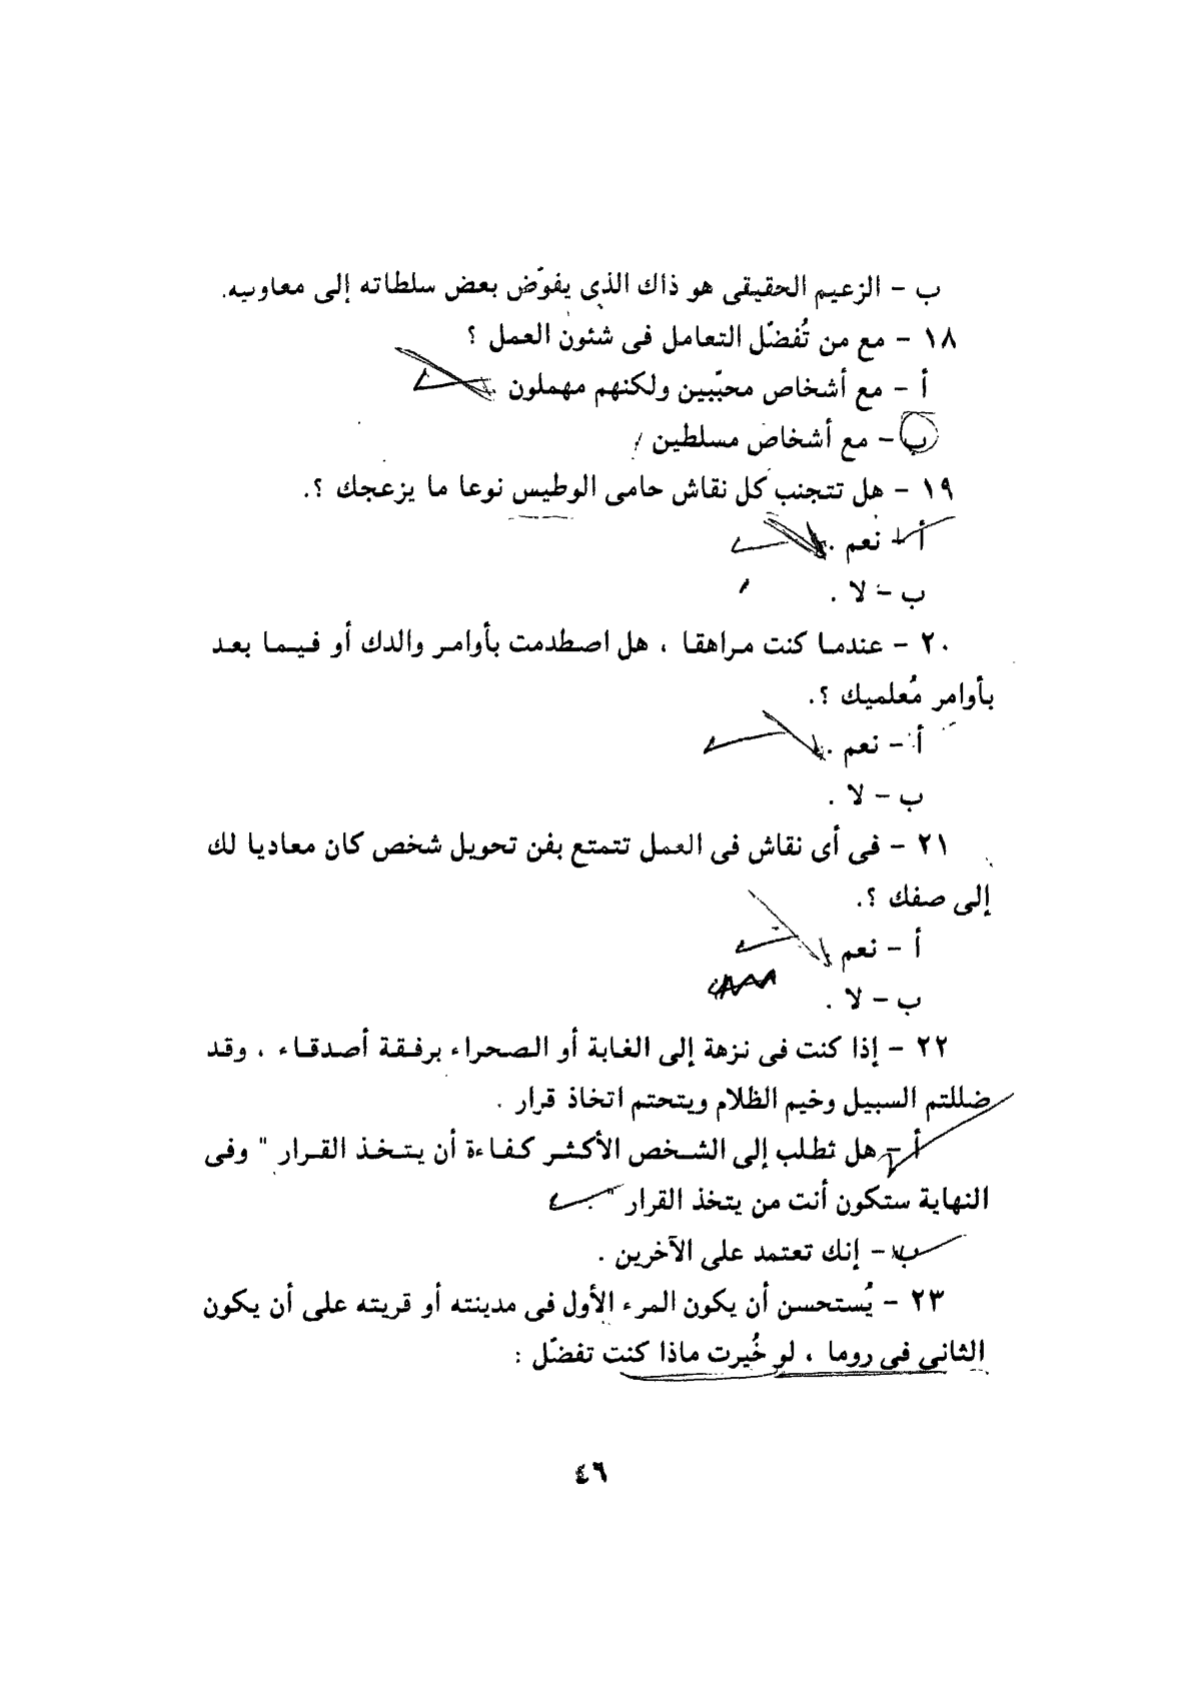 ب - الزعيم الحقيقى هو ذاك الذى يفوّض بعض سلطاته إلى معاونيه.
١٨ - مع من تُفضّل التعامل فى شئون العمل ؟
أ - مع أشخاص محبّبين ولكنهم مهملون .
ب - مع أشخاص مسلطين
١٩ - هل تتجنب كل نقاش حامى الوطيس نوعا ما يزعجك ؟.
أ - نعم .
ب - لا .
٢٠ - عندما كنت مراهقا ، هل اصطدمت بأوامر والدك أو فيما بعد
بأوامر مُعلميك ؟.
أ - نعم .
ب - لا .
٢١ - فى أى نقاش فى العمل تتمتع بفن تحويل شخص كان معاديا لك
إلى صفك ؟.
أ - نعم .
ب - لا .
٢٢ - إذا كنت فى نزهة إلى الغابة أو الصحراء برفقة أصدقاء ، وقد
ضللتم السبيل وخيم الظلام ويتحتم اتخاذ قرار .
أ - هل تطلب إلى الشخص الأكثر كفاءة أن يتخذ القرار " وفى
النهاية ستكون أنت من يتخذ القرار " .
ب - إنك تعتمد على الآخرين .
٢٣ - يُستحسن أن يكون المرء الأول فى مدينته أو قريته على أن يكون
الثانى فى روما ، لو خُيرت ماذا كنت تفضّل :
٤٦